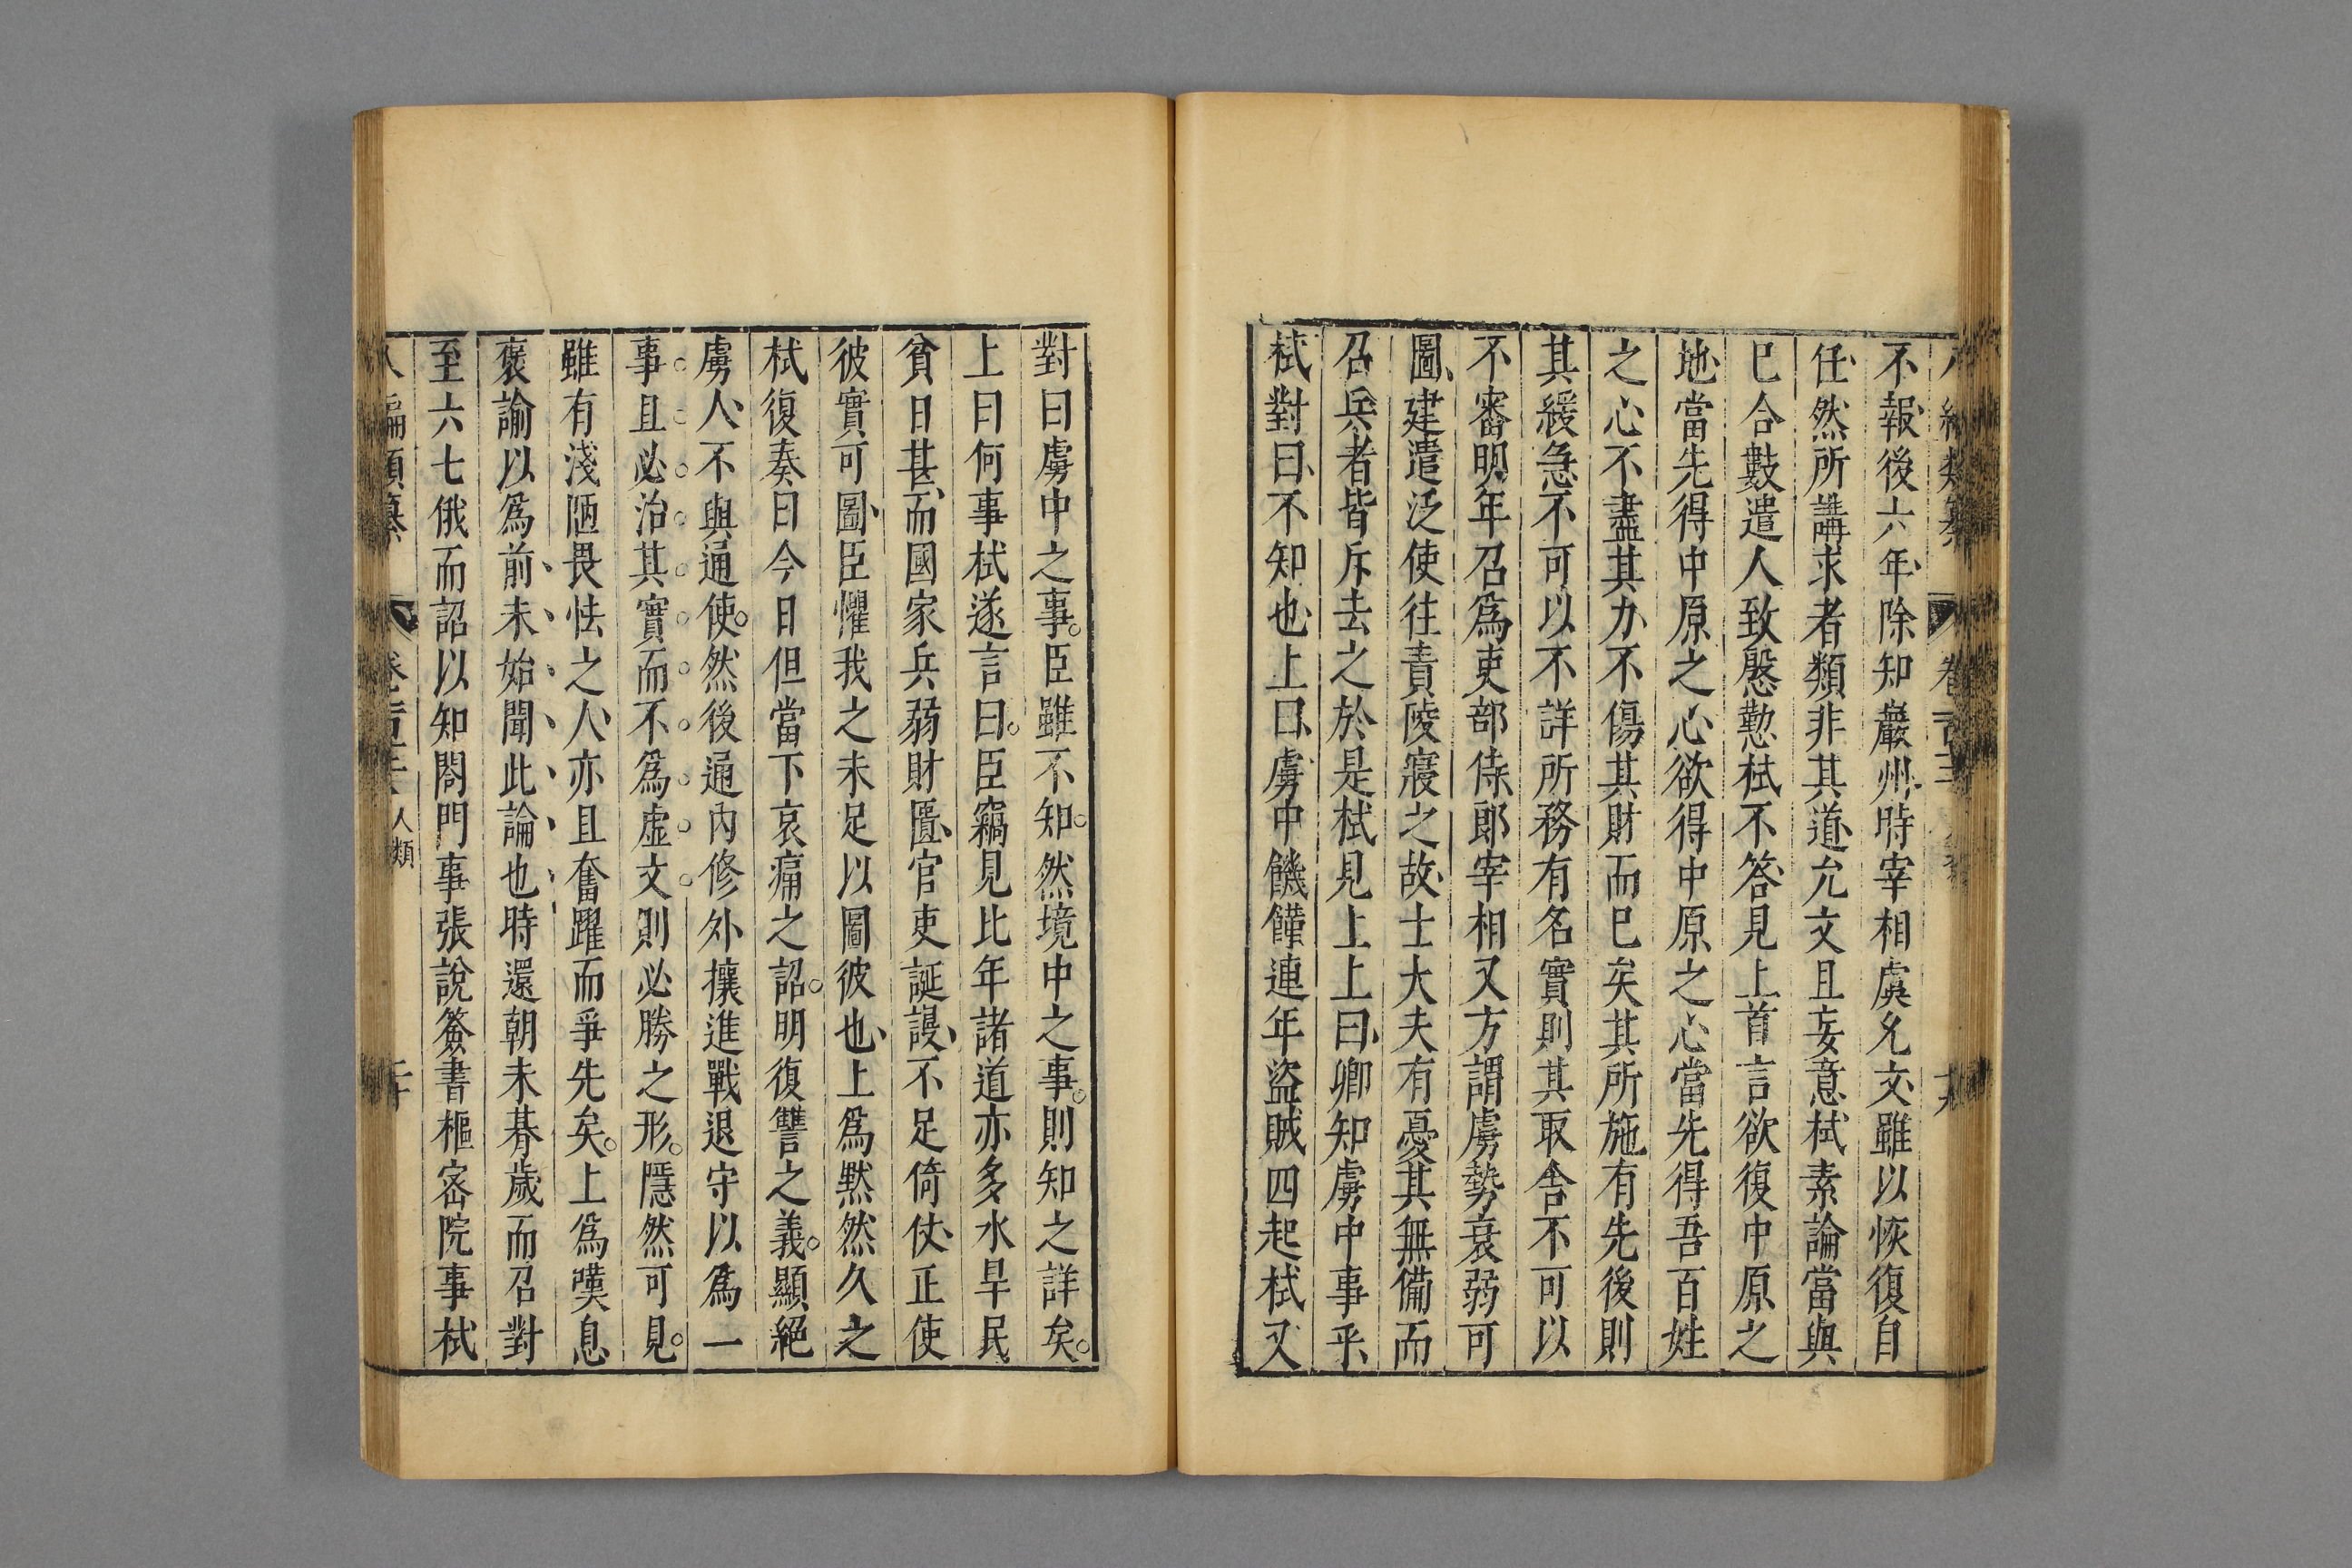 不報後六年除知嚴州時宰相虞允文雖以恢復自
任然所講求者類非其道允文且妄意栻素論當與
巳合數遣人致慇懃栻不答見上首言欲復中原之
地當先得中原之心欲得中原之心當先得吾百姓
之心不盡其力不傷其財而巳矣其所施有先後則
其緩急不可以不詳所務有名實則其取舍不可以
不審明年召爲吏部侍郎宰相又方謂虜勢衰弱可
圖建遣泛使往責陵寢之故士大夫有憂其無備而
召兵者皆斥去之於是栻見上上曰卿知虜中事乎
栻對曰不知也上曰虜中饑饉連年盜賊四起栻又
對曰虜中之事臣雖不知然境中之事則知之詳矣
上曰何事栻遂言曰臣竊見比年諸道亦多水旱民
貧日甚而國家兵弱財匱官吏誕謾不足倚仗正使
彼實可圖臣懼我之未足以圖彼也上爲黙然久之
栻復奏曰今日但當下哀痛之詔明復讐之義顯絕
虜人不與通使然後通內修外攘進戰退守以爲一
事且必治其實而不爲虛文則必勝之形隱然可見
雖有淺陋畏怯之人亦且奮躍而爭先矣上爲嘆息
褒諭以爲前未始聞此論也時還朝未朞歲而召對
至六七俄而詔以知閤門事張說簽書樞密院事栻
人類